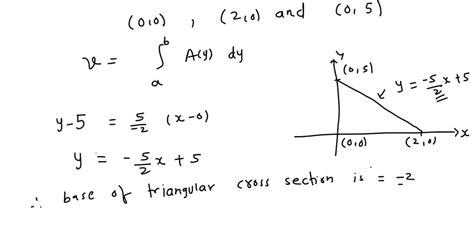 (0,0) , (2,0) and (0,5)
v = ∫_a^b A(y) dy
y-5 = 5/-2 (x-0)
y = -5/2 x + 5
∴ base of triangular cross section is = -2
y
(0,5)
y = -5/2 x+5
(0,0)
(2,0)
x